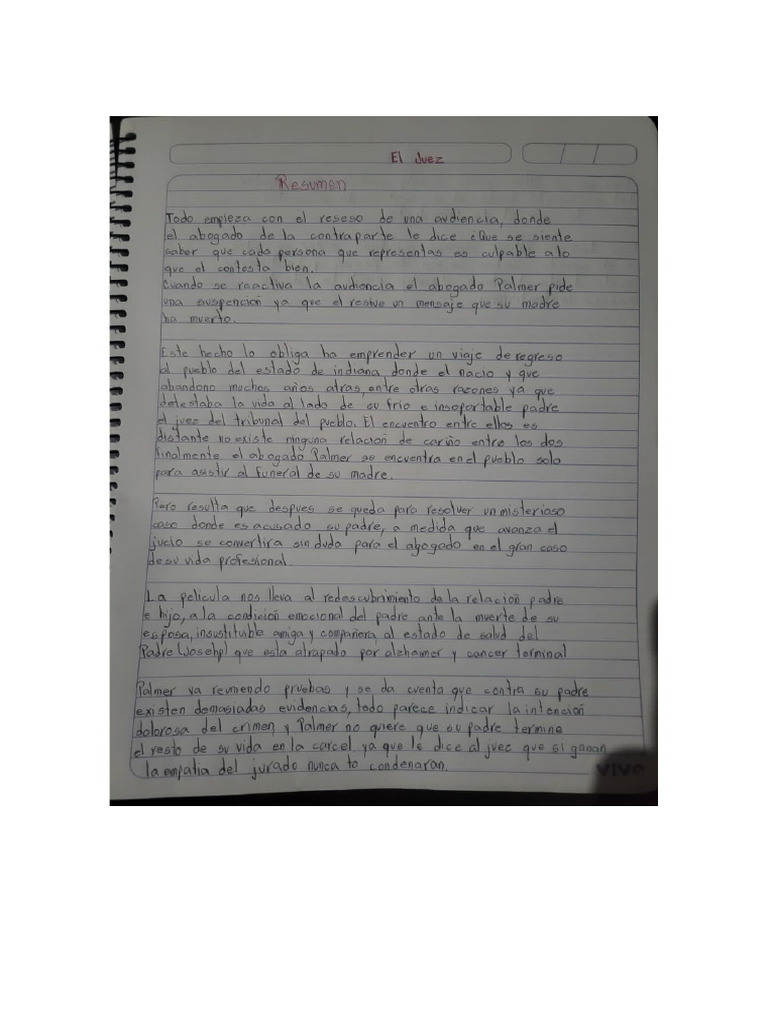 El Juez
Resumen
Todo empieza con el reseso de una audiencia, donde
el abogado de la contraparte le dice ¿Que se siente
saber que cada persona que representas es culpable alo
que el contesta bien.
Cuando se reactiva la audiencia el abogado Palmer pide
una suspención ya que el resive un mensaje que su madre
ha muerto.
Este hecho lo obliga ha emprender un viaje de regreso
al pueblo del estado de indiana, donde el nacio y que
abandono muchos años atras, entre otras razones ya que
detestaba la vida al lado de su frio e insoportable padre
el juez del tribunal del pueblo. El encuentro entre ellos es
distante no existe ninguna relación de cariño entre los dos
finalmente el abogado Palmer se encuentra en el pueblo solo
para asistir al funeral de su madre.
Pero resulta que despues se queda para resolver un misterioso
caso donde es acusado su padre, a medida que avanza el
jucio se convertira sin duda para el abogado en el gran caso
de su vida profesional.
La pelicula nos lleva al redescubrimiento de la relación padre
e hijo, a la condición emocional del padre ante la muerte de su
esposa, insustituble amiga y compañera, al estado de salud del
Padre (Josehp) que esta atrapado por alzhaimer y cancer terminal
Palmer va reuniendo pruebas y se da cuenta que contra su padre
existen demasiadas evidencias, todo parece indicar la intención
dolorosa del crimen y Palmer no quiere que su padre termine
el resto de su vida en la carcel ya que le dice al juez que si ganan
la empatia del jurado nunca to condenaran.
VIVO